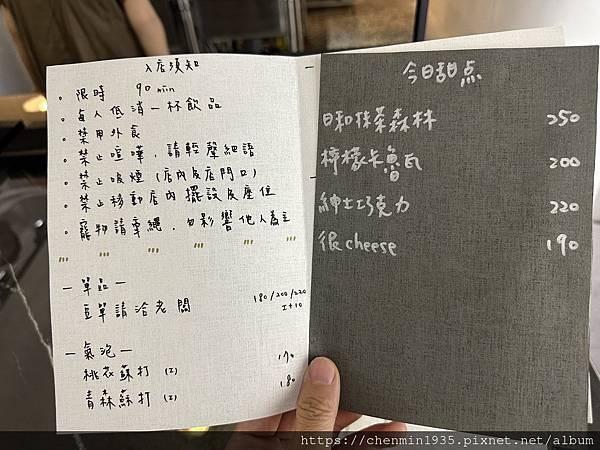 入店須知
。限時 90 min
。每人低消一杯飲品
。禁用外食
。禁止喧嘩，請輕聲細語
。禁止吸煙（店內及店門口）
。禁止移動店內擺設及座位
。寵物請牽繩，勿影響他人為主
— 單品 —
豆單請洽老闆 180/200/220
I+10
— 氣泡 —
桃衣蘇打 (I) 170
青森蘇打 (I) 180
今日甜点
日和抹茶森林 250
檸檬卡魯瓦 200
紳士巧克力 220
很cheese 190
https://chenmin1935.pixnet.net/album